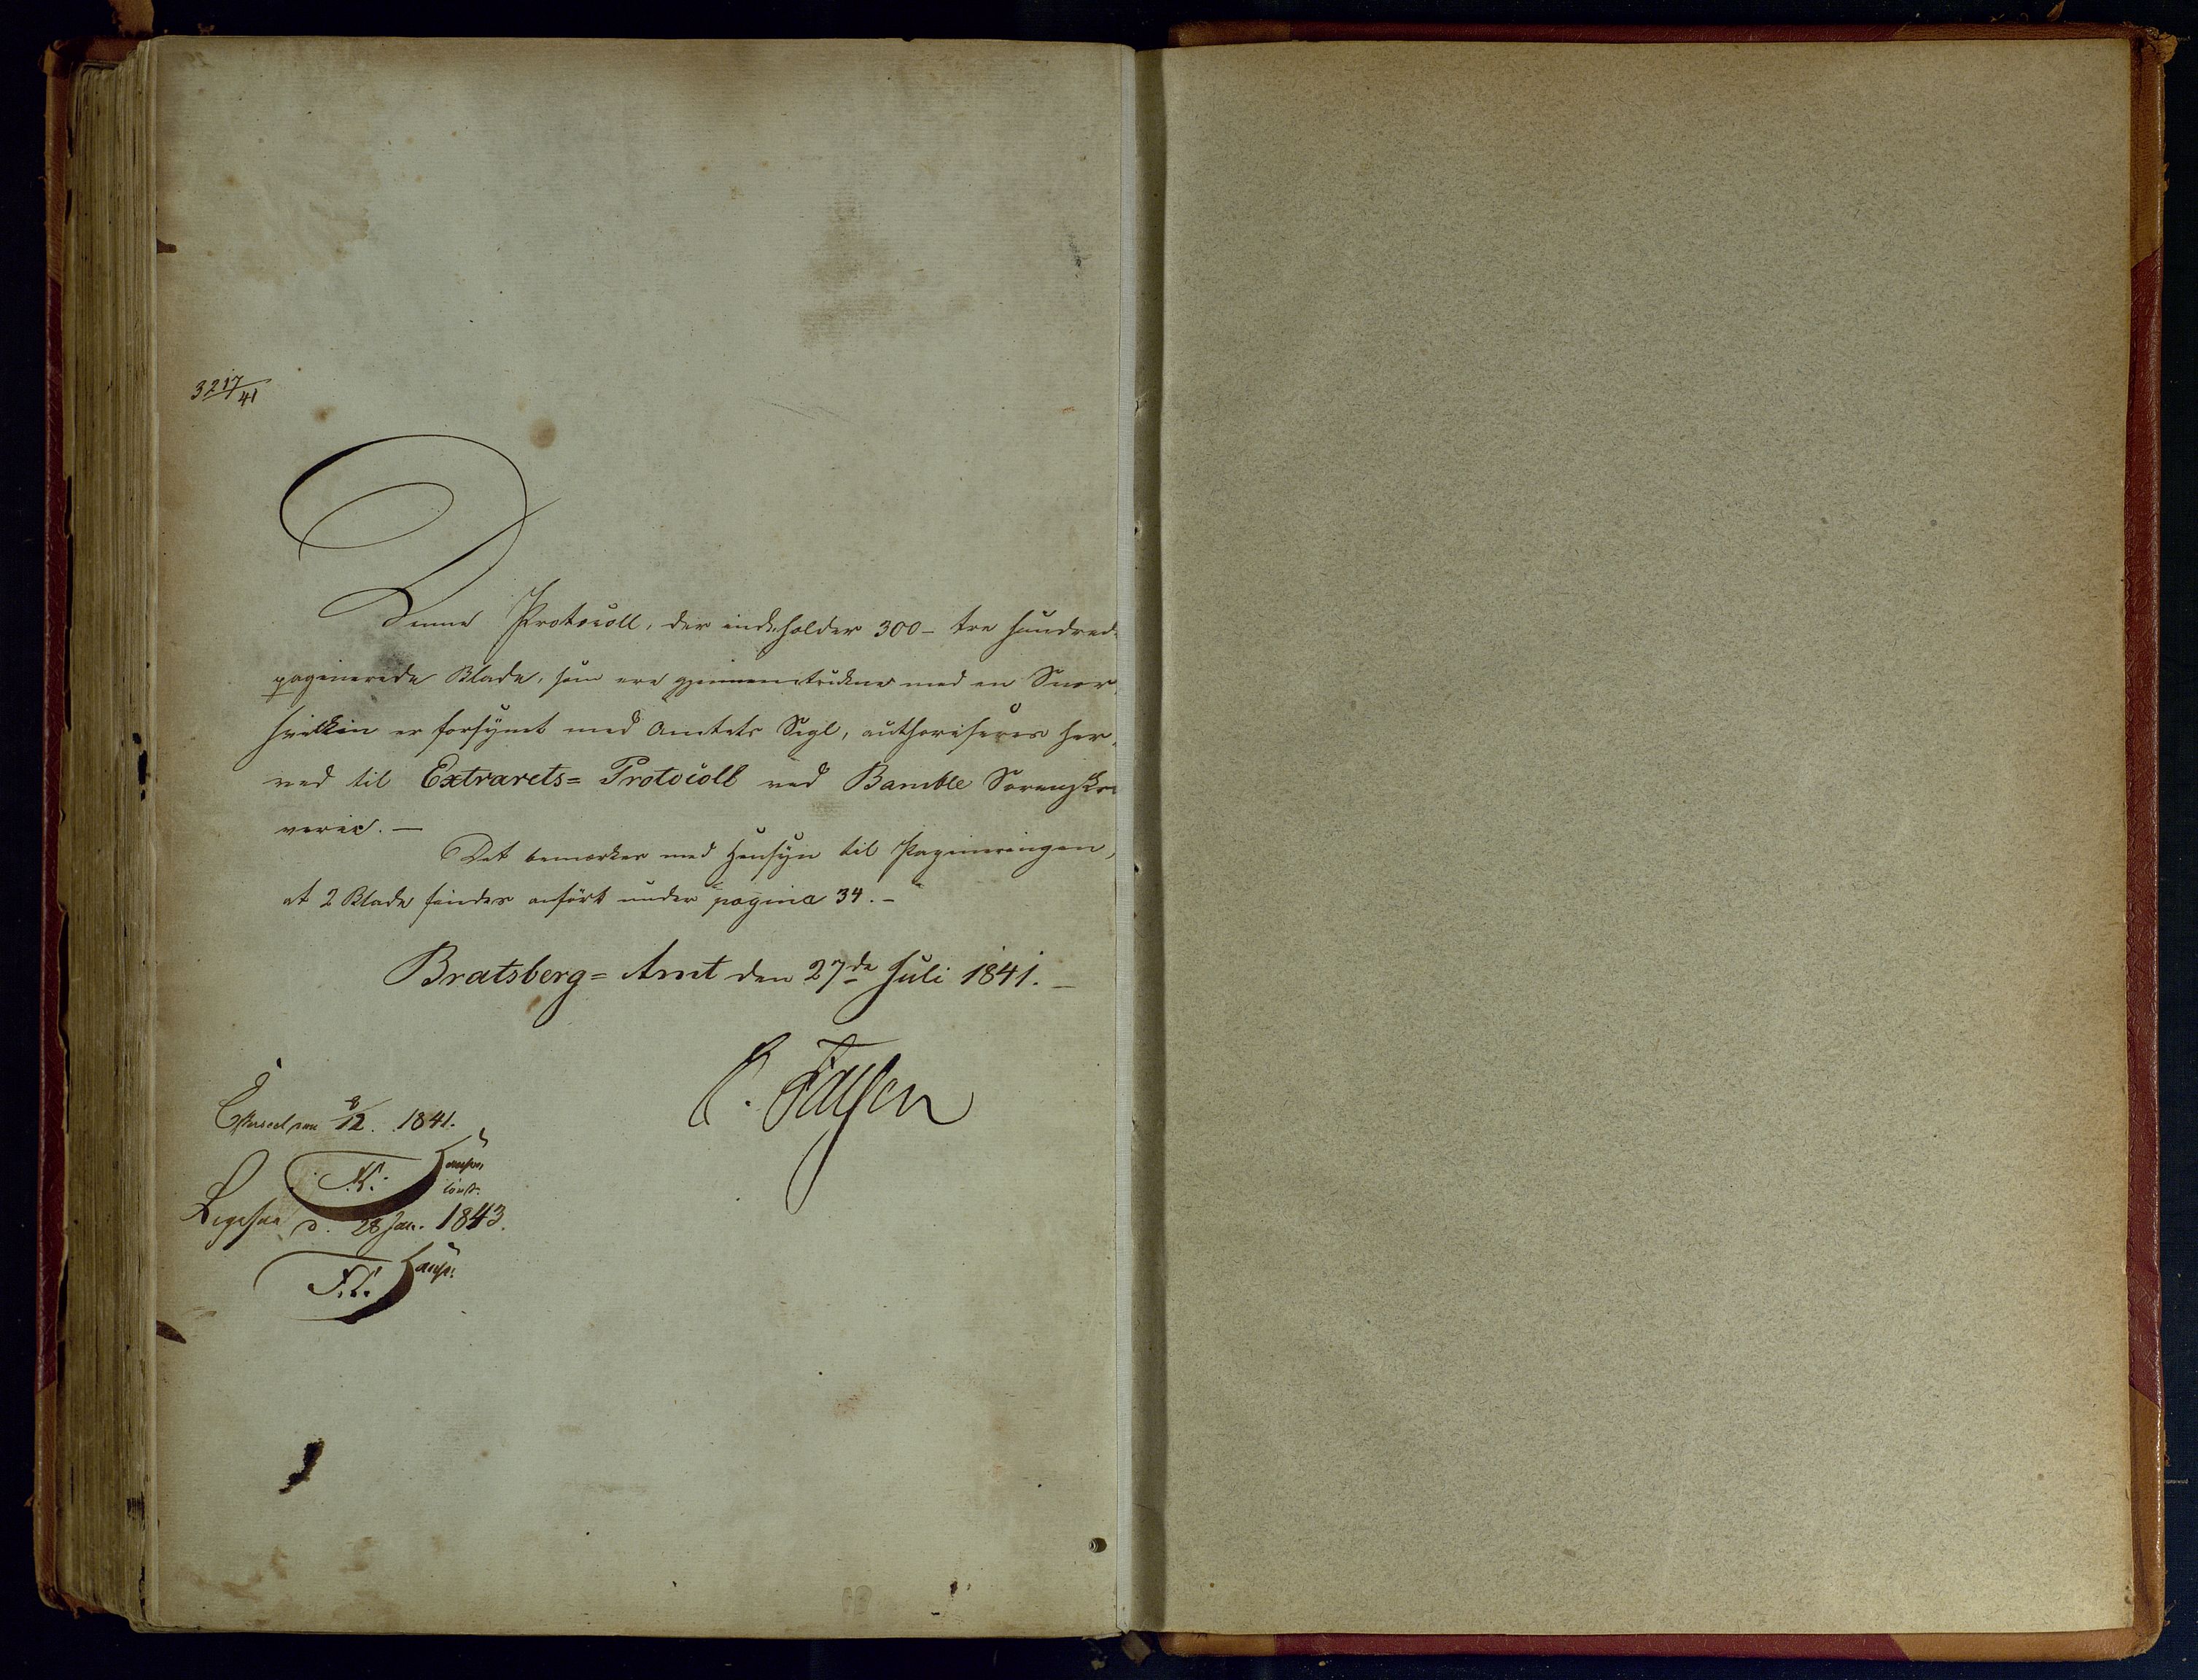 3217/41
Denne Protocoll, der indeholder 300 - tre hundrede
paginerede Blade, som ere gjennemtrukne med en Snor,
hvilken er forsynet med Amtets Segl, authoriseres her-
ved til Extrarets= Protocoll ved Bamble Sorenskri
verie. —
Det bemærkes med Hensyn til Pagineringen,
at 2 Blade findes anført under "pagina 34. - "
Bratsberg= Amt den 27de Juli 1841. —
8/12. 1841.
const.
Ligesaa d. 28 Jan. 1843.